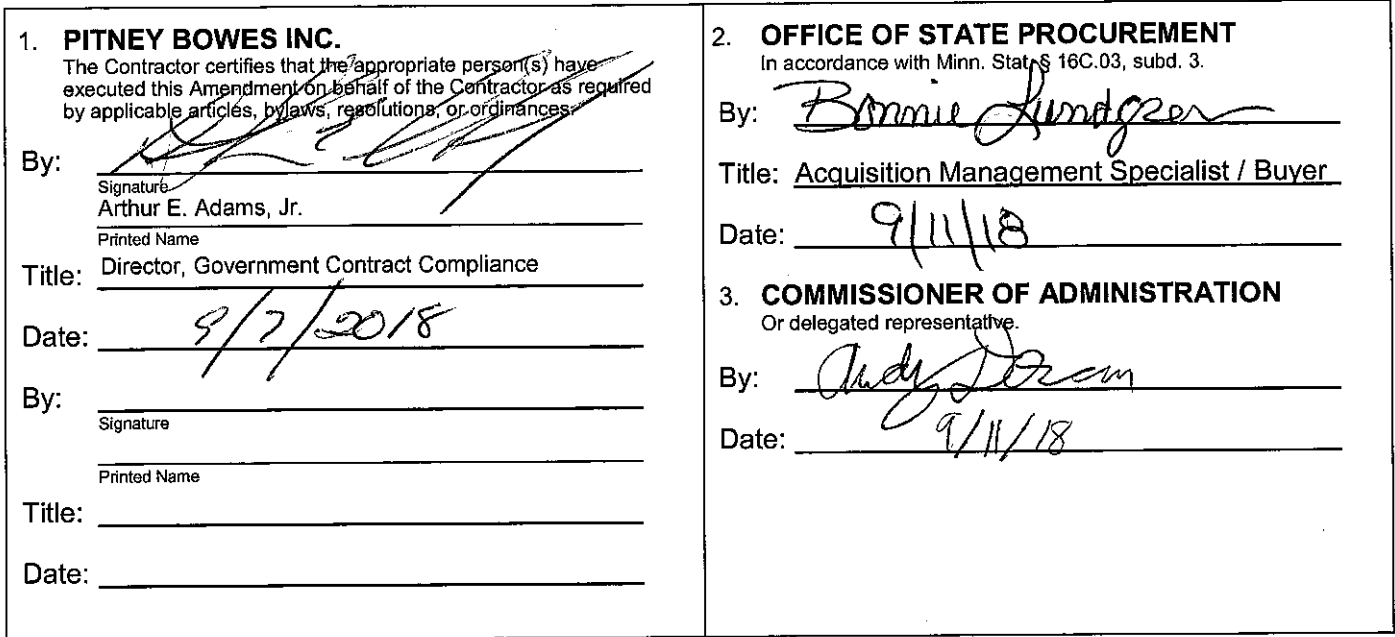 1. PITNEY BOWES INC.
The Contractor certifies that the appropriate person(s) have
executed this Amendment on behalf of the Contractor as required
by applicable articles, bylaws, resolutions, or ordinances.
By:
Signature
Arthur E. Adams, Jr.
Printed Name
Title: Director, Government Contract Compliance
Date: 9/7/2018
By:
Signature
Printed Name
Title:
Date:
2. OFFICE OF STATE PROCUREMENT
In accordance with Minn. Stat. § 16C.03, subd. 3.
By: Bonnie Lundgren
Title: Acquisition Management Specialist / Buyer
Date: 9/11/18
3. COMMISSIONER OF ADMINISTRATION
Or delegated representative.
By: Andy Doran
Date: 9/11/18